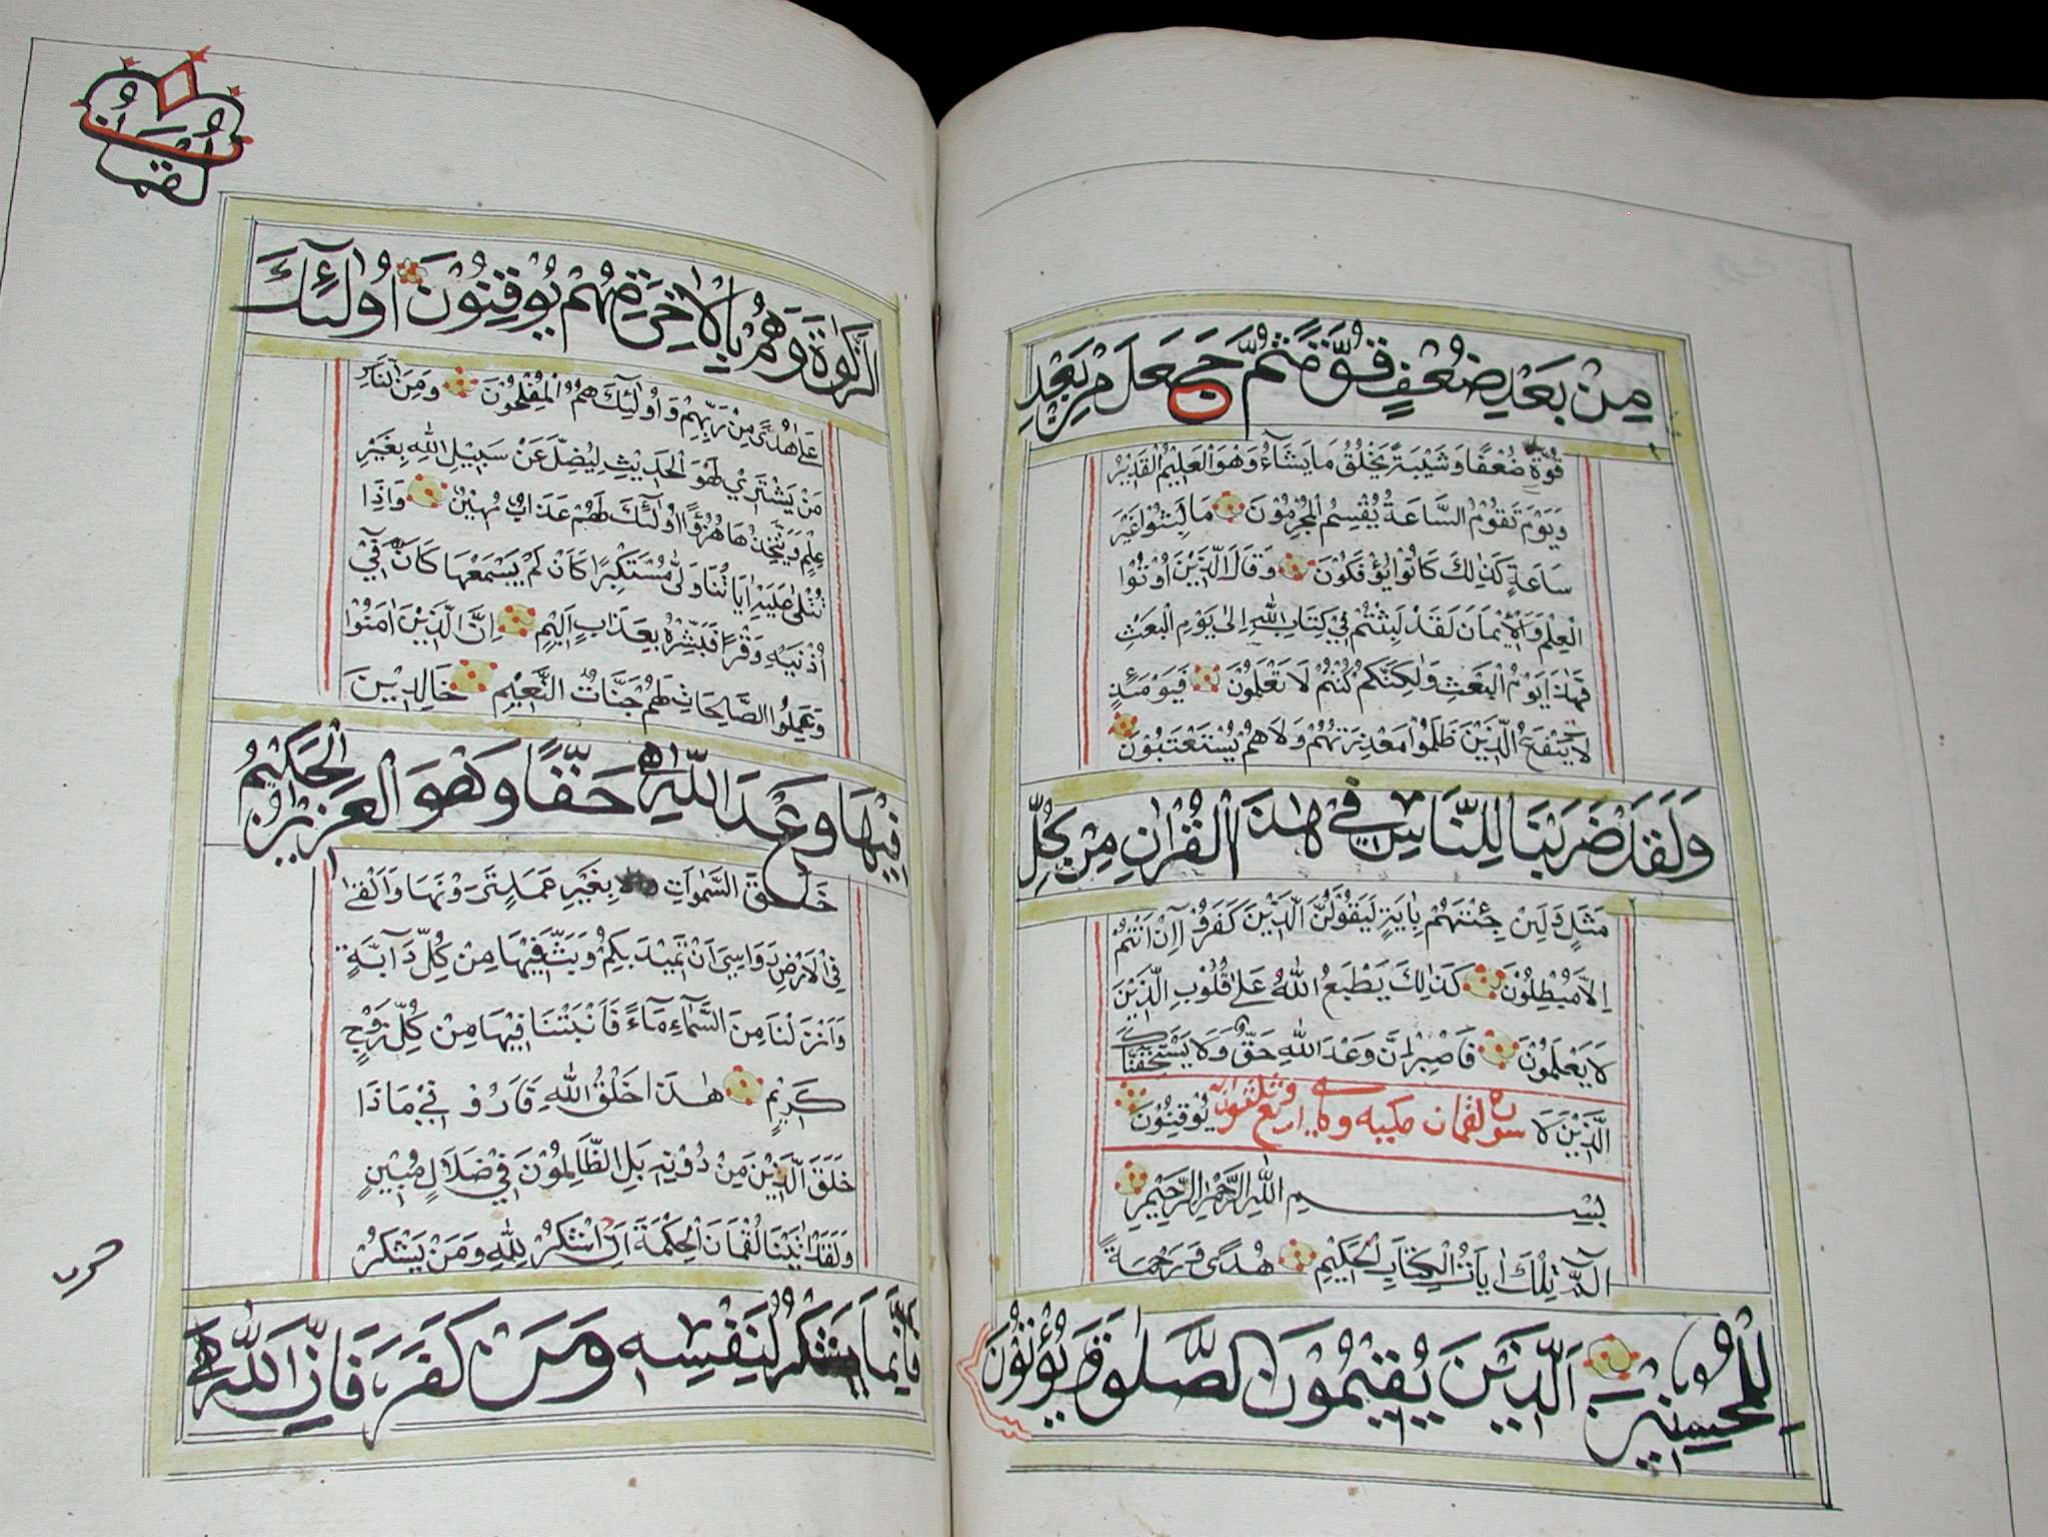 مِنْ بَعْدِ ضُعْفٍ قُوَّةً ثُمَّ جَعَلَ مِنْ بَعْدِ
قُوَّةٍ ضُعْفًا وَشَيْبَةً يَخْلُقُ مَا يَشَآءُ وَهُوَ الْعَلِيْمُ الْقَدِيْرُ
وَيَوْمَ تَقُوْمُ السَّاعَةُ يُقْسِمُ الْمُجْرِمُوْنَ مَا لَبِثُوْا غَيْرَ
سَاعَةٍ كَذٰلِكَ كَانُوْا يُؤْفَكُوْنَ وَقَالَ الَّذِيْنَ اُوْتُوْا
الْعِلْمَ وَالْاِيْمَانَ لَقَدْ لَبِثْتُمْ فِيْ كِتَابِ اللّٰهِ اِلٰى يَوْمِ الْبَعْثِ
فَهٰذَا يَوْمُ الْبَعْثِ وَلٰكِنَّكُمْ كُنْتُمْ لَا تَعْلَمُوْنَ فَيَوْمَئِذٍ
لَا يَنْفَعُ الَّذِيْنَ ظَلَمُوْا مَعْذِرَتُهُمْ وَلَا هُمْ يُسْتَعْتَبُوْنَ
وَلَقَدْ ضَرَبْنَا لِلنَّاسِ فِيْ هٰذَا الْقُرْاٰنِ مِنْ كُلِّ
مَثَلٍ وَلَئِنْ جِئْتَهُمْ بِاٰيَةٍ لَيَقُوْلَنَّ الَّذِيْنَ كَفَرُوْا اِنْ اَنْتُمْ
اِلَّا مُبْطِلُوْنَ كَذٰلِكَ يَطْبَعُ اللّٰهُ عَلٰى قُلُوْبِ الَّذِيْنَ
لَا يَعْلَمُوْنَ فَاصْبِرْ اِنَّ وَعْدَ اللّٰهِ حَقٌّ وَلَا يَسْتَخِفَّنَّكَ
الَّذِيْنَ لَا يُوْقِنُوْنَ سورة لقمان مكيه وهي اربع وثلثون اية
بِسْمِ اللّٰهِ الرَّحْمٰنِ الرَّحِيْمِ
الٓمّٓ تِلْكَ اٰيَاتُ الْكِتَابِ الْحَكِيْمِ هُدًى وَرَحْمَةً
لِلْمُحْسِنِيْنَ اَلَّذِيْنَ يُقِيْمُوْنَ الصَّلٰوةَ وَيُؤْتُوْنَ
لُقْمَانُ
الزَّكٰوةَ وَهُمْ بِالْاٰخِرَةِ هُمْ يُوْقِنُوْنَ اُولٰٓئِكَ
عَلٰى هُدًى مِنْ رَبِّهِمْ وَاُولٰٓئِكَ هُمُ الْمُفْلِحُوْنَ وَمِنَ النَّاسِ
مَنْ يَشْتَرِيْ لَهْوَ الْحَدِيْثِ لِيُضِلَّ عَنْ سَبِيْلِ اللّٰهِ بِغَيْرِ
عِلْمٍ وَيَتَّخِذَهَا هُزُؤًا اُولٰٓئِكَ لَهُمْ عَذَابٌ مُهِيْنٌ وَاِذَا
تُتْلٰى عَلَيْهِ اٰيَاتُنَا وَلّٰى مُسْتَكْبِرًا كَاَنْ لَمْ يَسْمَعْهَا كَاَنَّ فِيْ
اُذُنَيْهِ وَقْرًا فَبَشِّرْهُ بِعَذَابٍ اَلِيْمٍ اِنَّ الَّذِيْنَ اٰمَنُوْا
وَعَمِلُوا الصَّالِحَاتِ لَهُمْ جَنَّاتُ النَّعِيْمِ خَالِدِيْنَ
فِيْهَا وَعْدَ اللّٰهِ حَقًّا وَهُوَ الْعَزِيْزُ الْحَكِيْمُ
خَلَقَ السَّمٰوَاتِ بِغَيْرِ عَمَدٍ تَرَوْنَهَا وَاَلْقٰى
فِي الْاَرْضِ رَوَاسِيَ اَنْ تَمِيْدَ بِكُمْ وَبَثَّ فِيْهَا مِنْ كُلِّ دَآبَّةٍ
وَاَنْزَلْنَا مِنَ السَّمَآءِ مَآءً فَاَنْبَتْنَا فِيْهَا مِنْ كُلِّ زَوْجٍ
كَرِيْمٍ هٰذَا خَلْقُ اللّٰهِ فَاَرُوْنِيْ مَاذَا
خَلَقَ الَّذِيْنَ مِنْ دُوْنِهِ بَلِ الظَّالِمُوْنَ فِيْ ضَلَالٍ مُبِيْنٍ
وَلَقَدْ اٰتَيْنَا لُقْمَانَ الْحِكْمَةَ اَنِ اشْكُرْ لِلّٰهِ وَمَنْ يَشْكُرْ
فَاِنَّمَا يَشْكُرُ لِنَفْسِهِ وَمَنْ كَفَرَ فَاِنَّ اللّٰهَ